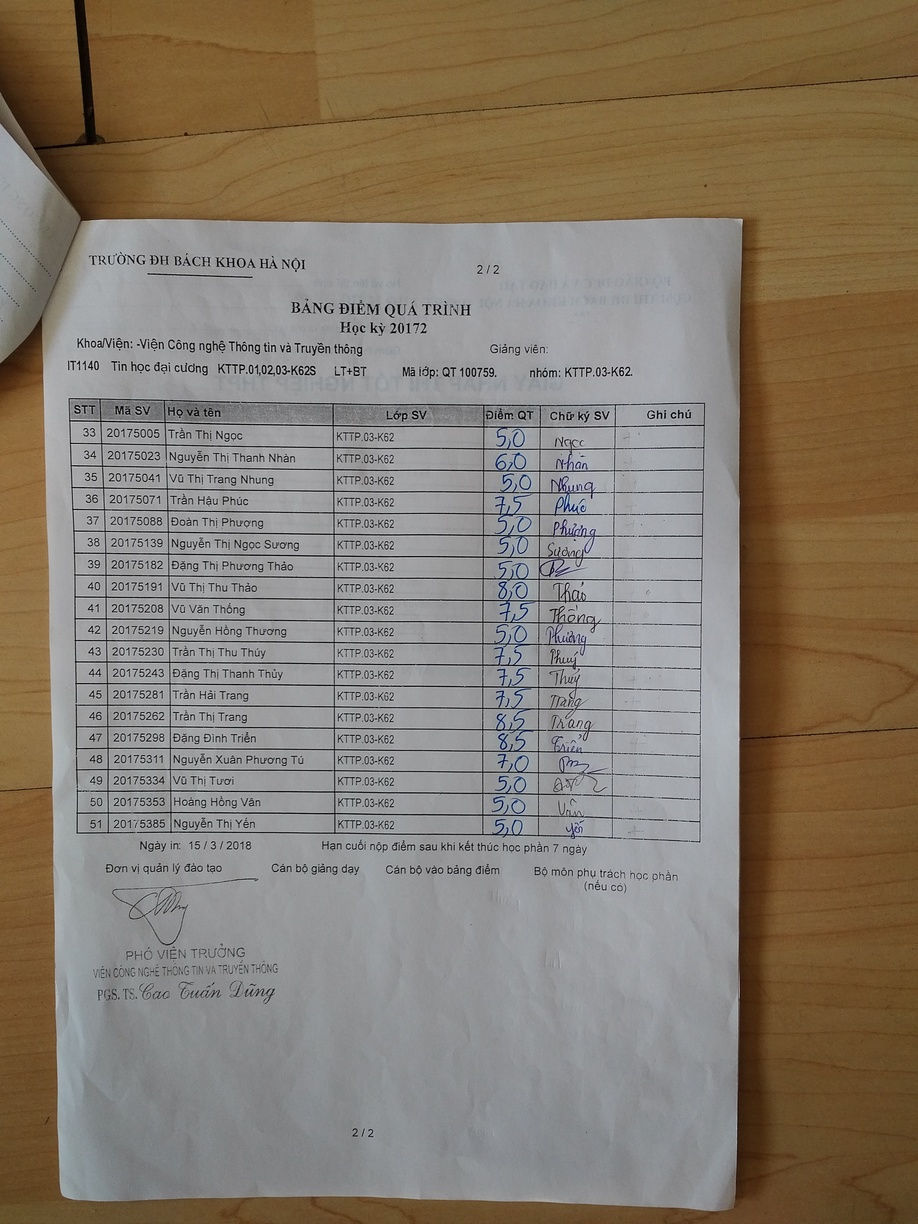 TRƯỜNG ĐH BÁCH KHOA HÀ NỘI 2 / 2
BẢNG ĐIỂM QUÁ TRÌNH
Học kỳ 20172
Khoa/Viện: -Viện Công nghệ Thông tin và Truyền thông Giảng viên:
IT1140 Tin học đại cương KTTP.01,02,03-K62S LT+BT Mã lớp: QT 100759. nhóm: KTTP.03-K62.
STT Mã SV Họ và tên Lớp SV Điểm QT Chữ ký SV Ghi chú
33 20175005 Trần Thị Ngọc KTTP.03-K62 5,0 Ngọc
34 20175023 Nguyễn Thị Thanh Nhàn KTTP.03-K62 6,0 Nhàn
35 20175041 Vũ Thị Trang Nhung KTTP.03-K62 5,0 Nhung
36 20175071 Trần Hậu Phúc KTTP.03-K62 7,5 Phúc
37 20175088 Đoàn Thị Phượng KTTP.03-K62 5,0 Phượng
38 20175139 Nguyễn Thị Ngọc Sương KTTP.03-K62 5,0 Sương
39 20175182 Đặng Thị Phương Thảo KTTP.03-K62 5,0
40 20175191 Vũ Thị Thu Thảo KTTP.03-K62 8,0 Thảo
41 20175208 Vũ Văn Thống KTTP.03-K62 7,5 Thống
42 20175219 Nguyễn Hồng Thương KTTP.03-K62 5,0 Thương
43 20175230 Trần Thị Thu Thúy KTTP.03-K62 7,5 Thuý
44 20175243 Đặng Thị Thanh Thủy KTTP.03-K62 7,5 Thủy
45 20175281 Trần Hải Trang KTTP.03-K62 7,5 Trang
46 20175262 Trần Thị Trang KTTP.03-K62 8,5 Trang
47 20175298 Đặng Đình Triển KTTP.03-K62 8,5 Triển
48 20175311 Nguyễn Xuân Phương Tú KTTP.03-K62 7,0
49 20175334 Vũ Thị Tươi KTTP.03-K62 5,0
50 20175353 Hoàng Hồng Vân KTTP.03-K62 5,0 Vân
51 20175385 Nguyễn Thị Yến KTTP.03-K62 5,0 Yến
Ngày in: 15 / 3 / 2018 Hạn cuối nộp điểm sau khi kết thúc học phần 7 ngày
Đơn vị quản lý đào tạo Cán bộ giảng dạy Cán bộ vào bảng điểm Bộ môn phụ trách học phần
(nếu có)
PHÓ VIỆN TRƯỞNG
VIỆN CÔNG NGHỆ THÔNG TIN VÀ TRUYỀN THÔNG
PGS. TS. Cao Tuấn Dũng
2 / 2